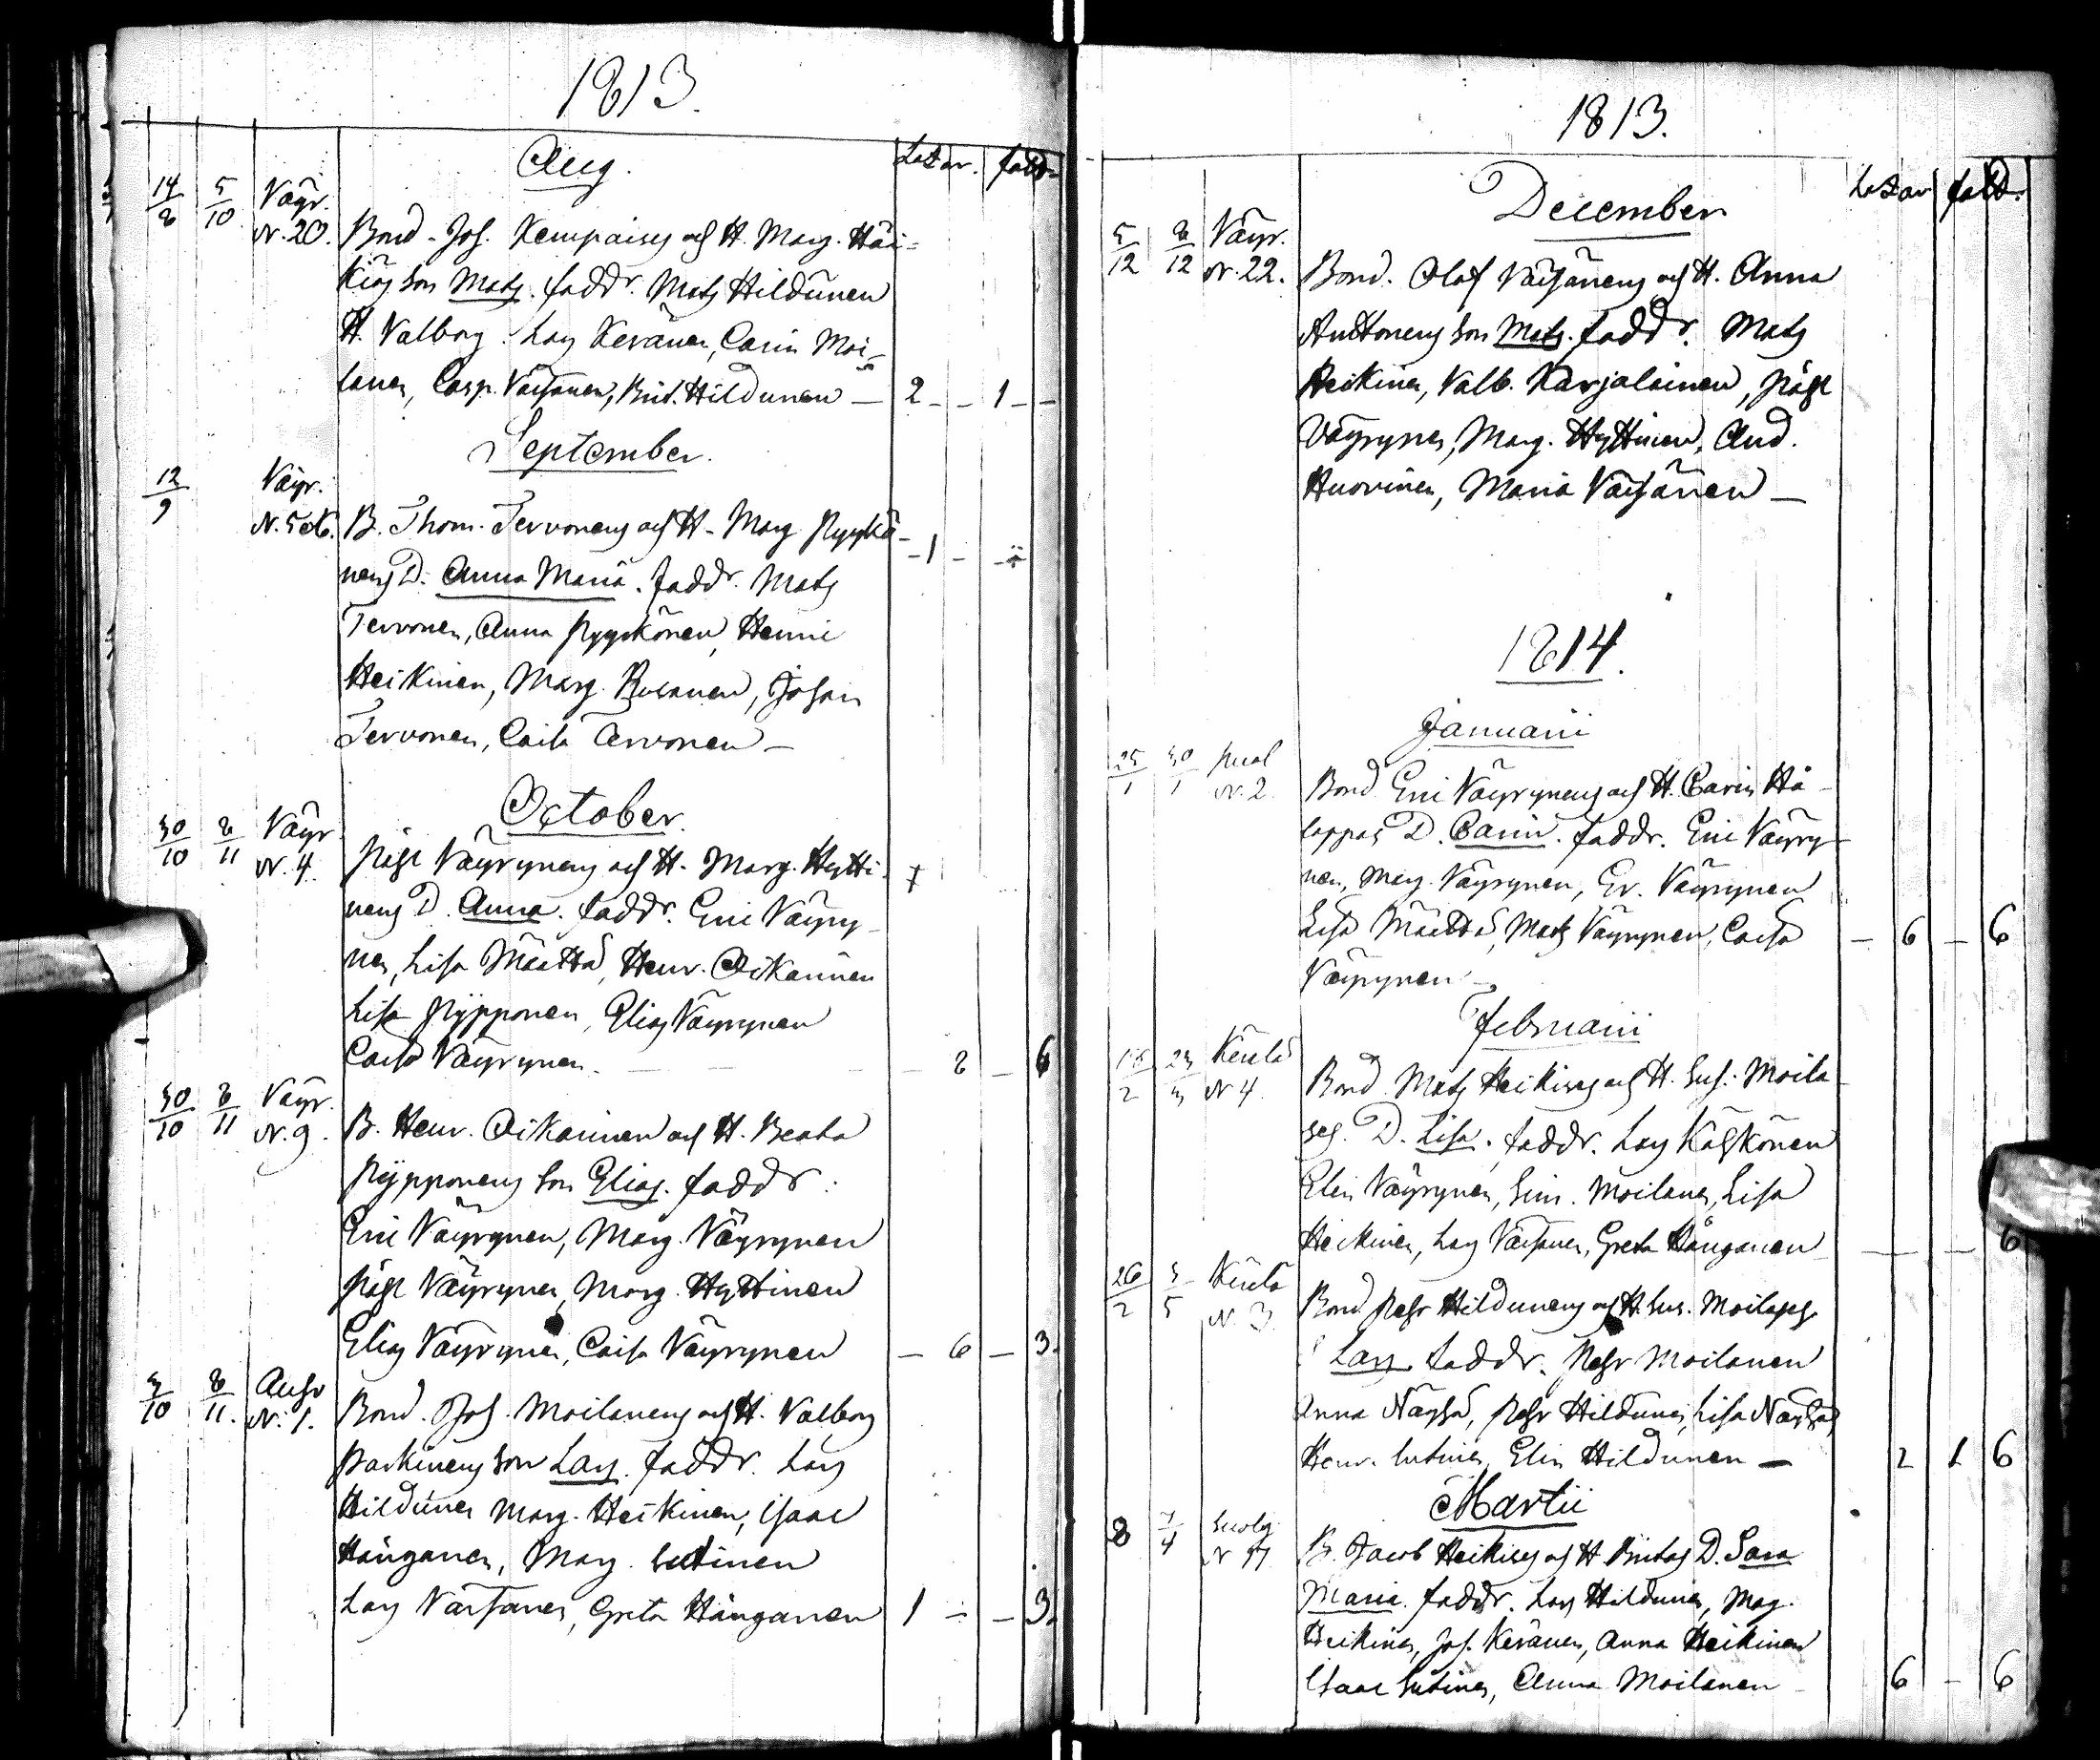 1813.
Aug.
Lazar. fadd.
14/8 5/10 Väyr.
N. 20. Bond. Joh. Kempaines och H. Marg. Här-
kiös son Mats. faddr. Mats Hildunen
H. Valborg. Lars Keränen, Carin Moi-
lanen, Casp. Väisänen, Brit. Hildunen — 2 - - 1 - -
September.
12/9 Väyr.
N. 5 et 6. B. Thom. Tervonens och H. Marg. Pyykö- - 1 -
nens D. Anna Maria. faddr. Mats
Tervonen, Anna Pyykönen, Henric
Heikinen, Marg. Rusanen, Johan
Tervonen, Caisa Tervonen —
October.
30/10 8/11 Väyr
N. 4. Påhl Väyrynens och H. Marg. Hytti-
nens D. Anna. faddr. Eric Väyry-
nen, Lisa Määttä, Henr. Oikarinen
Lisa Nypponen, Elias Väyrynen
Caisa Väyrynen. — 8 — 6
30/10 8/11 Väyr.
N. 9. B. Henr. Oikarinen och H. Beata
Nypponens son Elias. faddr:
Eric Väyrynen, Marg. Väyrynen
Påhl Väyrynen, Marg. Hyttinen
Elias Väyrynen, Caisa Väyrynen — 6 — 3.
3/10 8/11. Auho
N. 1. Bond. Joh. Moilanens och H. Valborg
Parkinens son Lars. faddr. Lars
Hildunen Marg. Heikinen, Isaac
Hänganen, Marg. Lutinen
Lars Väisänen, Greta Hänganen 1 — — 3.
1813.
December
Lazar fadd.
5/12 8/12 Väyr.
N. 22. Bond. Olof Väisänens och H. Anna
Anttonens son Mats. faddr. Mats
Heikinen, Valb. Karjalainen, Påhl
Väyrynen, Marg. Hyttinen, And.
Huovinen, Maria Väisänen —
1814.
Januarii
25/1 30/1 Puol
N. 2. Bond. Eric Väyrynens och H. Carin Hä-
lappas D. Carin. faddr. Eric Väyry-
nen, Marg. Väyrynen, Er. Väyrynen
Lisa Määttä, Mats Väyrynen, Caisa — 6 — 6
Väyrynen —
Februarii
2 23/3 Keula
N 4. Bond Mats Heikines och H. Sus. Moila-
nes. D. Lisa. faddr. Lars Käskönen
Elin Väyrynen, Sim. Moilanen, Lisa
Heikinen, Lars Väisänen, Greta Hänganen — — 6
26/2 3/5 Keula
N. 3. Bond Pehr Hildunens och H. Sus. Moilanes
Lars. faddr. Pehr Moilanen
Anna Näyhä, Pehr Hildunen, Lisa
Henr. Lutinen, Elin Hildunen — 2 1 6
Martii
8 7/4
N 17 B. Jacob Heikines och H. Britas D. Sara
Maria. faddr. Lars Hildunen, Marg.
Heikinen, Joh. Keränen, Anna Heikinen
Isaac Lutinen, Anna Moilanen 6 — 6